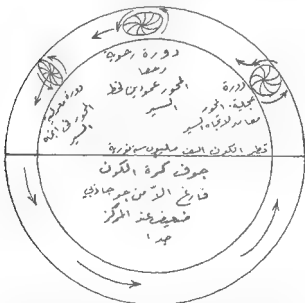 دورة رحوية
المحور عمودي على خط
السير
دورة
عجلية: المحور
معامد لاتجاه السير
دورة مغزلية
المحور في اتجاه
السير
قطر الكون ألف مليون سنة نورية
جوف كرة الكون
فارغ إلا من جو جاذبي
ضعيف عند المركز
جدا